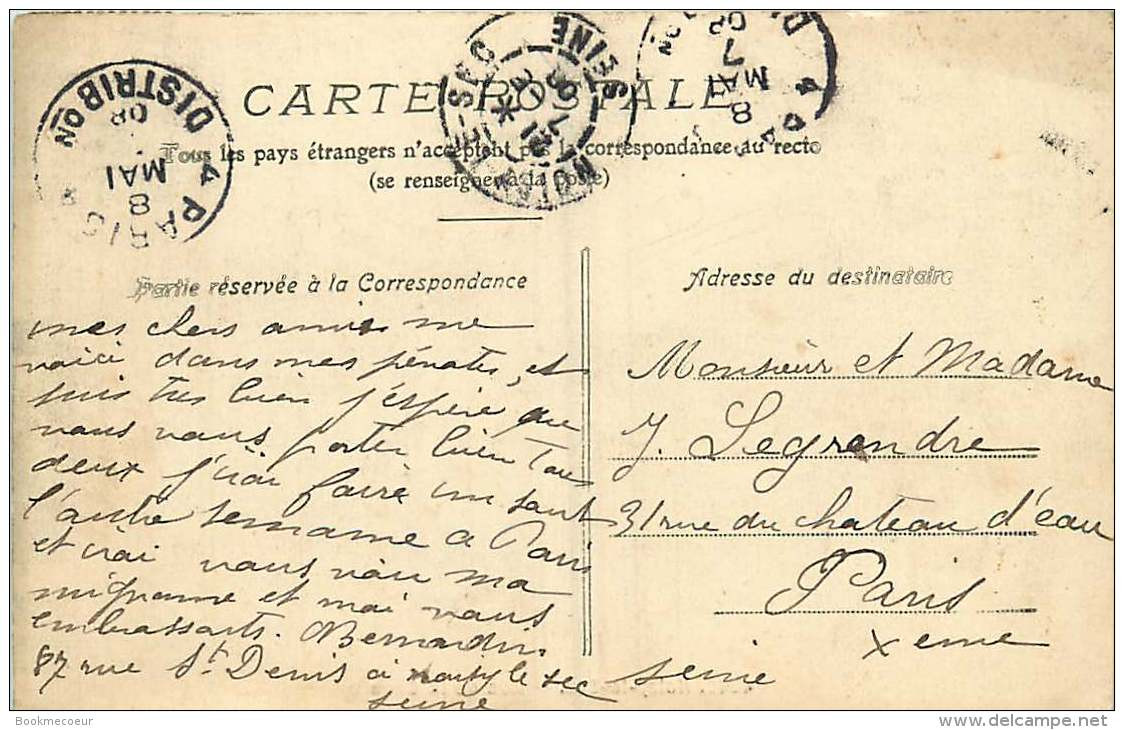 CARTE POSTALE
Tous les pays étrangers n'acceptent pas la correspondance au recto
(se renseigner à la Poste)
PARIS 4 DISTRIBON
8
MAI
08
NOISY-LE-SEC
SEINE
8
MAI
7
08
Partie réservée à la Correspondance
mes chers amis me
voici dans mes pénates, et
suis tres bien j'éspère que
vous vous porter bien Tous
deux j'irai faire un saut
l'autre semaine a Paris
et irai vous voir ma
mignonne et moi vous
embrassants. Bernardin
87 rue St Denis a noisy le sec
seine
Adresse du destinataire
Monsieur et Madame
J. Legrendre
31 rue du chateau d'eau
Paris
xeme
seine
Bookmecoeur
delcampe.net